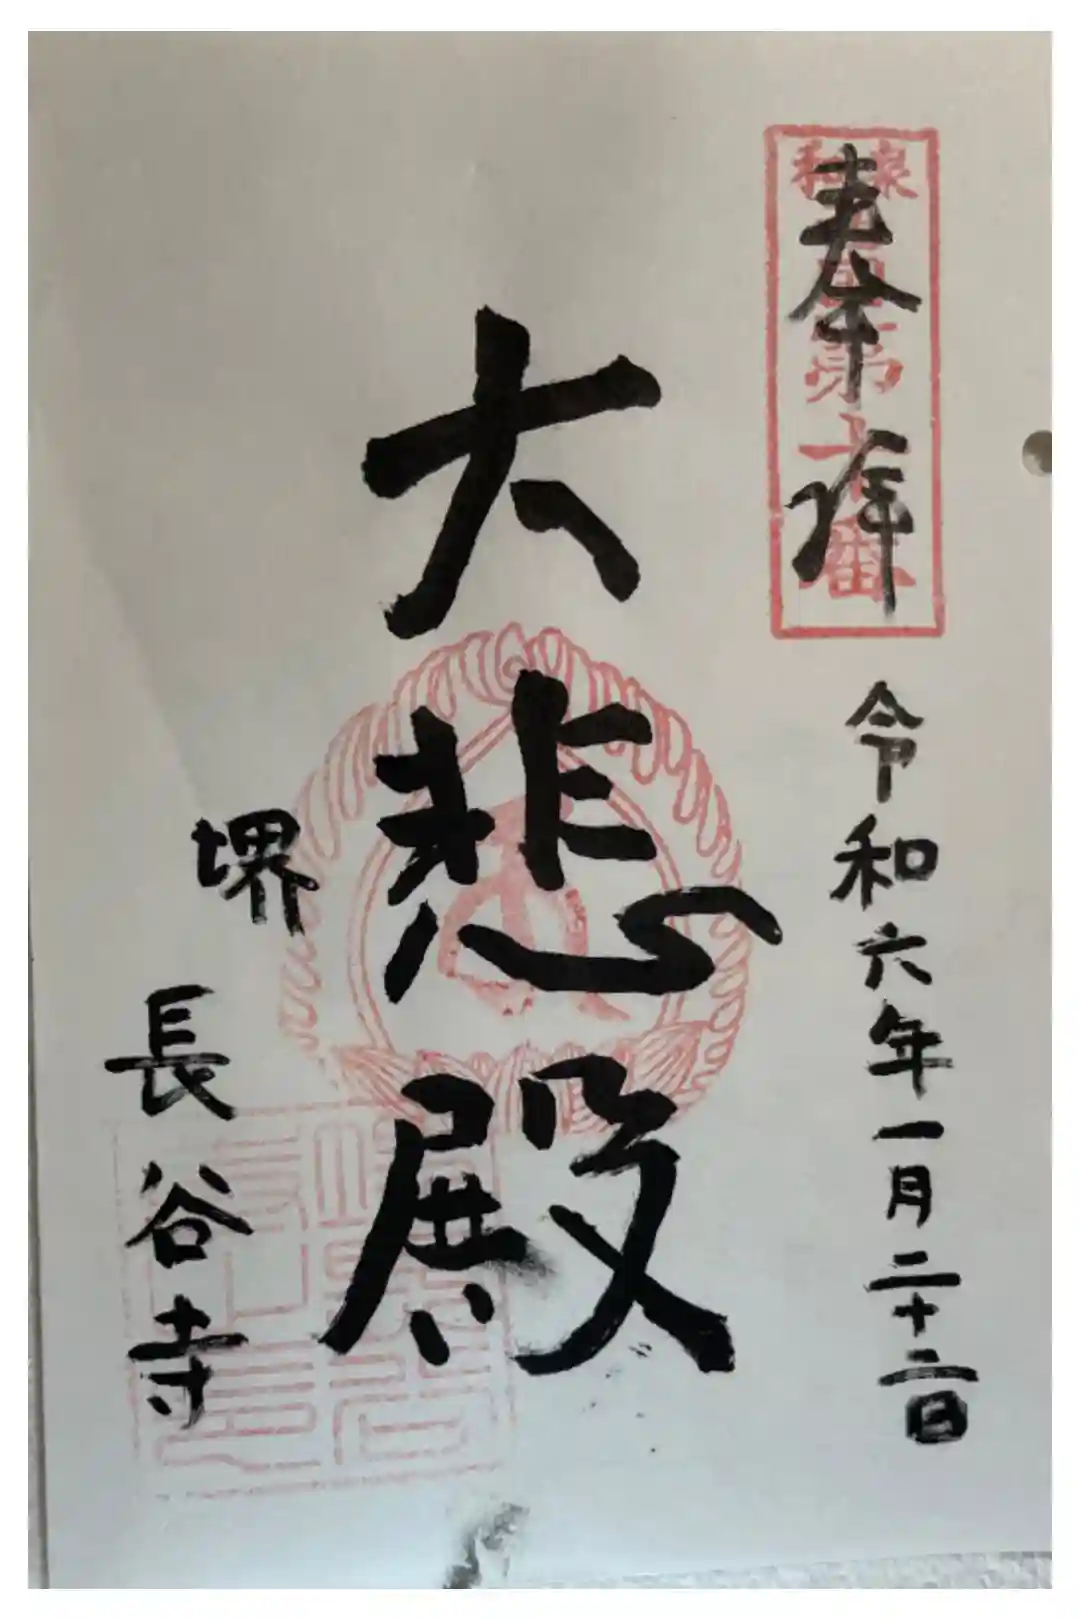 和泉
奉拝
令和六年一月二十二日
大悲殿
堺
長谷寺